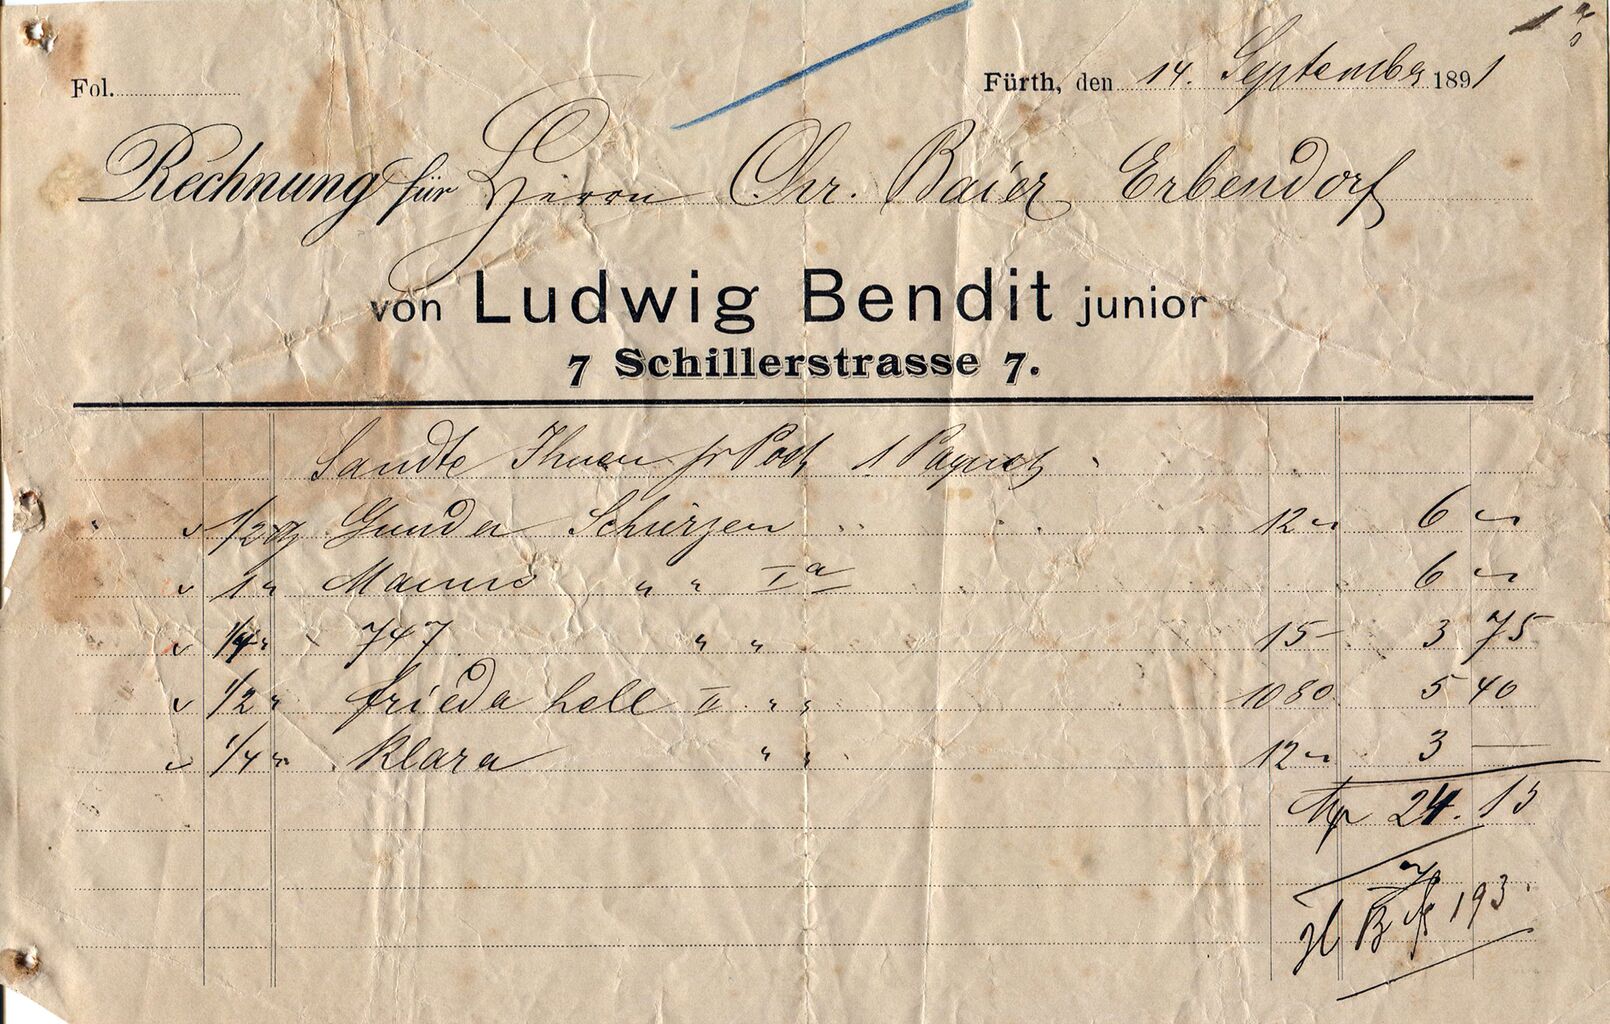 Fol.
Fürth, den 14. September 1891
Rechnung für Herrn Chr. Baier Erbendorf
von Ludwig Bendit junior
7 Schillerstrasse 7.
Sandte Ihnen pr Post 1 Paquet
1/2 Gunda Schürzen 12 6
1 " " " Ia 6
1/4 " 747 " " 15 3 75
1/2 " frieda hell II " " 10 80 5 40
1/4 " Klara " " 12 3 —
24. 15
193